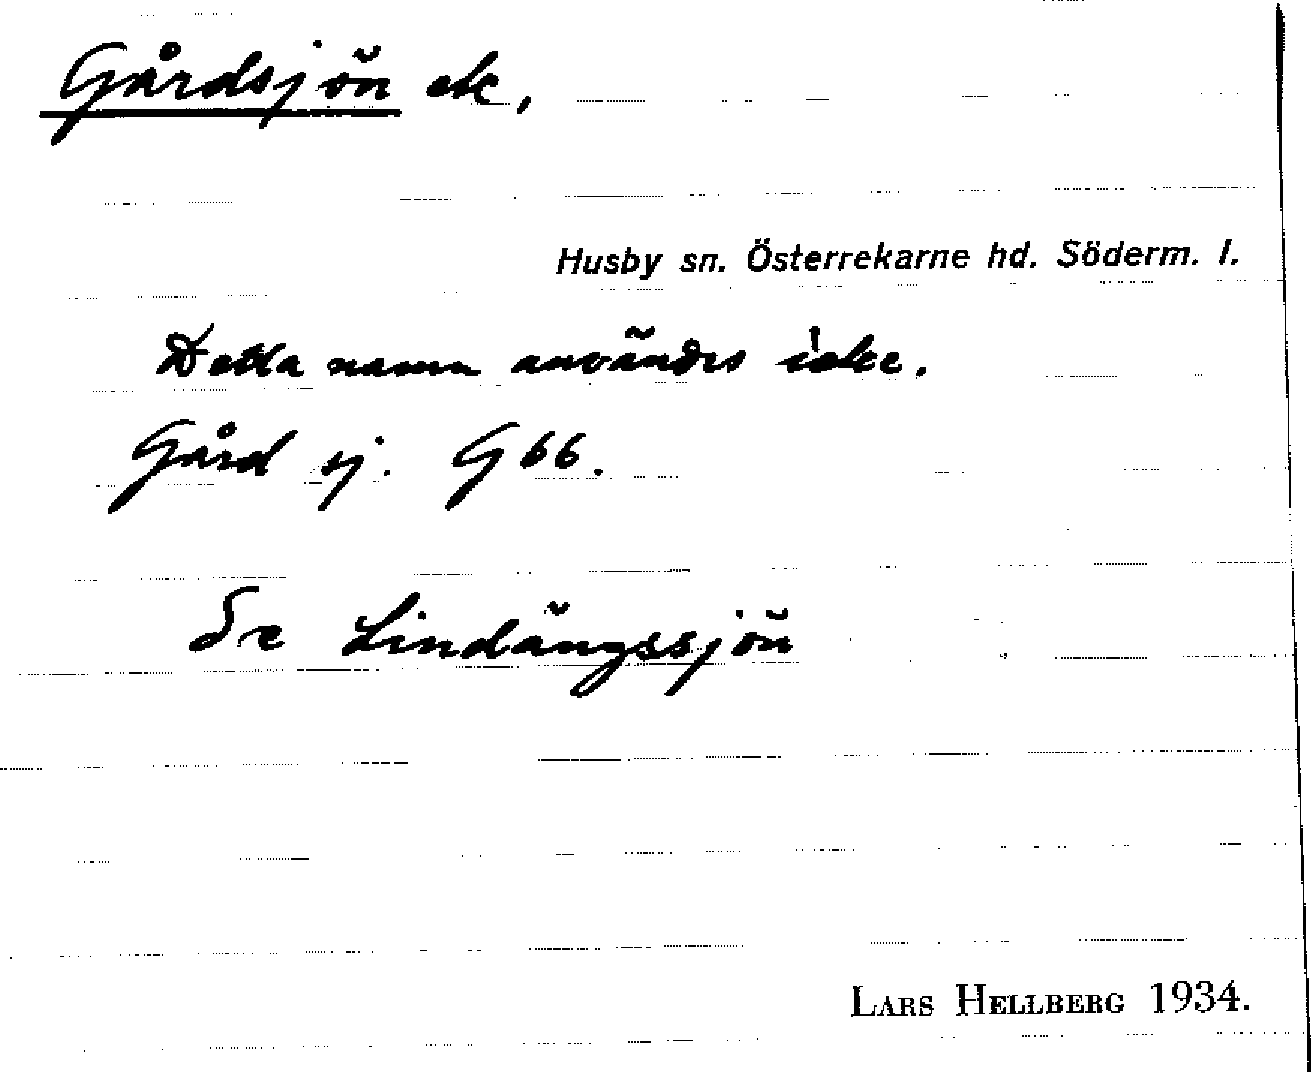 Gårdsjön ek,
Husby sn. Österrekarne hd. Söderm. l.
Detta namn användes icke.
Gård sj. G 66.
Se Lindängssjön
LARS HELLBERG 1934.